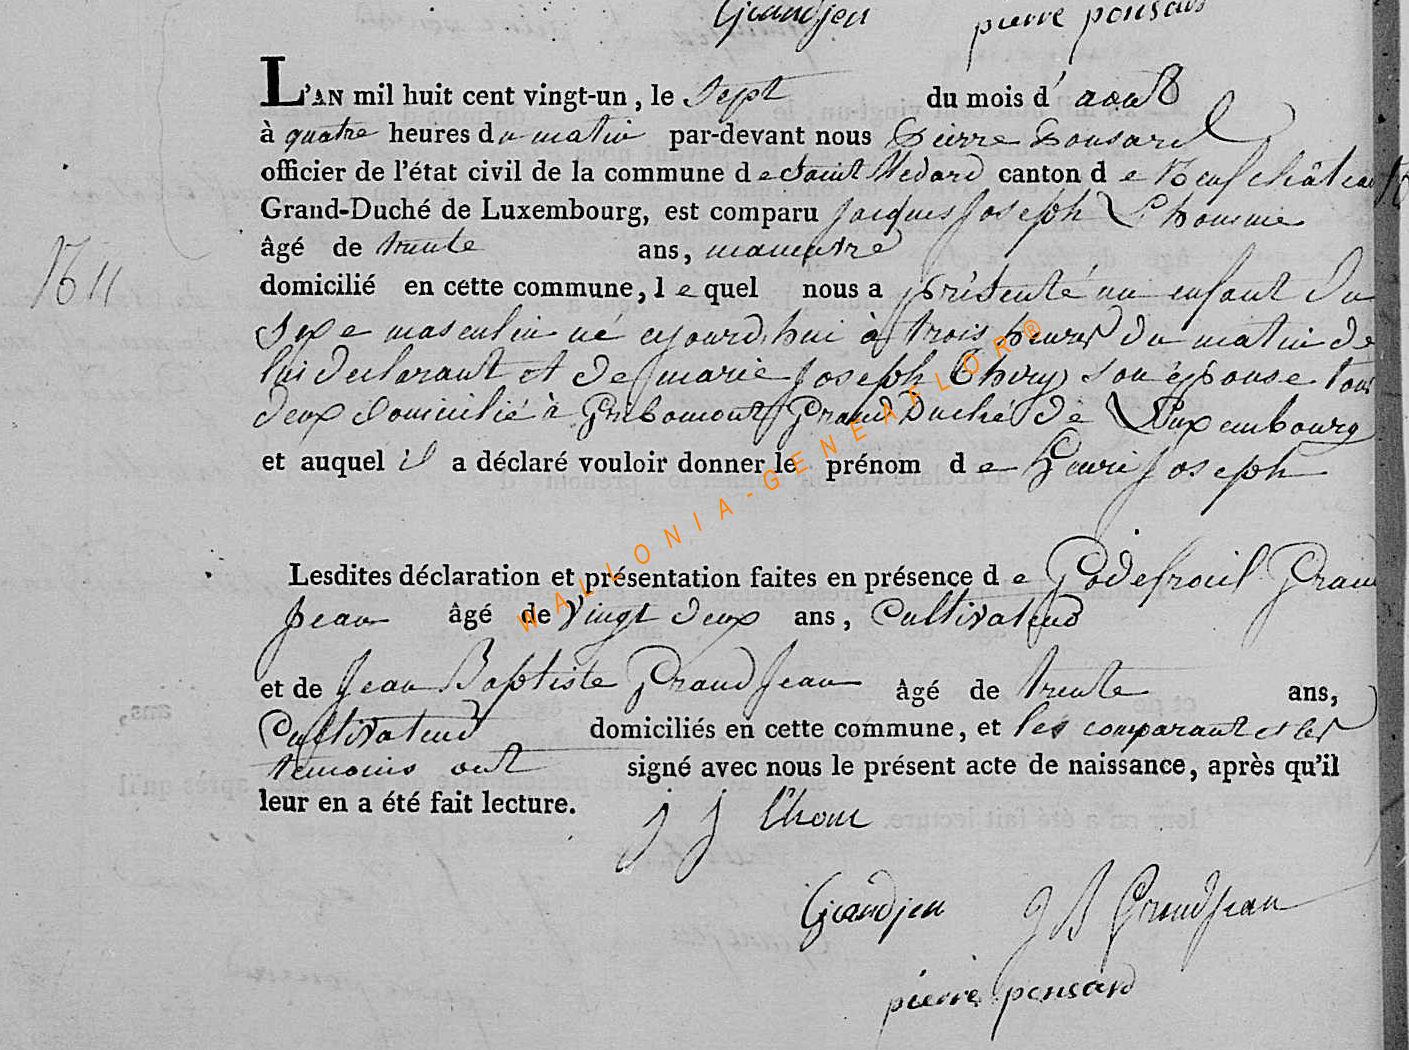 Grandjen pierre ponsard
L'AN mil huit cent vingt-un, le sept du mois d'aout
à quatre heures du matin par-devant nous Pierre Ponsard
officier de l'état civil de la commune de Saint Medard canton de Neufchâteau
Grand-Duché de Luxembourg, est comparu Jacques Joseph Lhomme
âgé de trente ans, manuvre
domicilié en cette commune, lequel nous a présenté un enfant du
N 11
sexe masculin né ejourd'hui à trois heures du matin de
lui declarant et de marie Joseph Thiry son épouse tous
deux domicilié à Gribomont Grand Duché de Luxembourg
et auquel il a déclaré vouloir donner le prénom de Henri Joseph
Lesdites déclaration et présentation faites en présence de Godefroid Grand
Jean âgé de vingt deux ans, Cultivateur
et de Jean Baptiste Grand Jean âgé de trente ans,
Cultivateur domiciliés en cette commune, et les comparant et les
temoins ont signé avec nous le présent acte de naissance, après qu'il
leur en a été fait lecture.
j j lhom
Grandjen J B Grandjean
pierre ponsard
WALLONIA-GENEAFLOR®